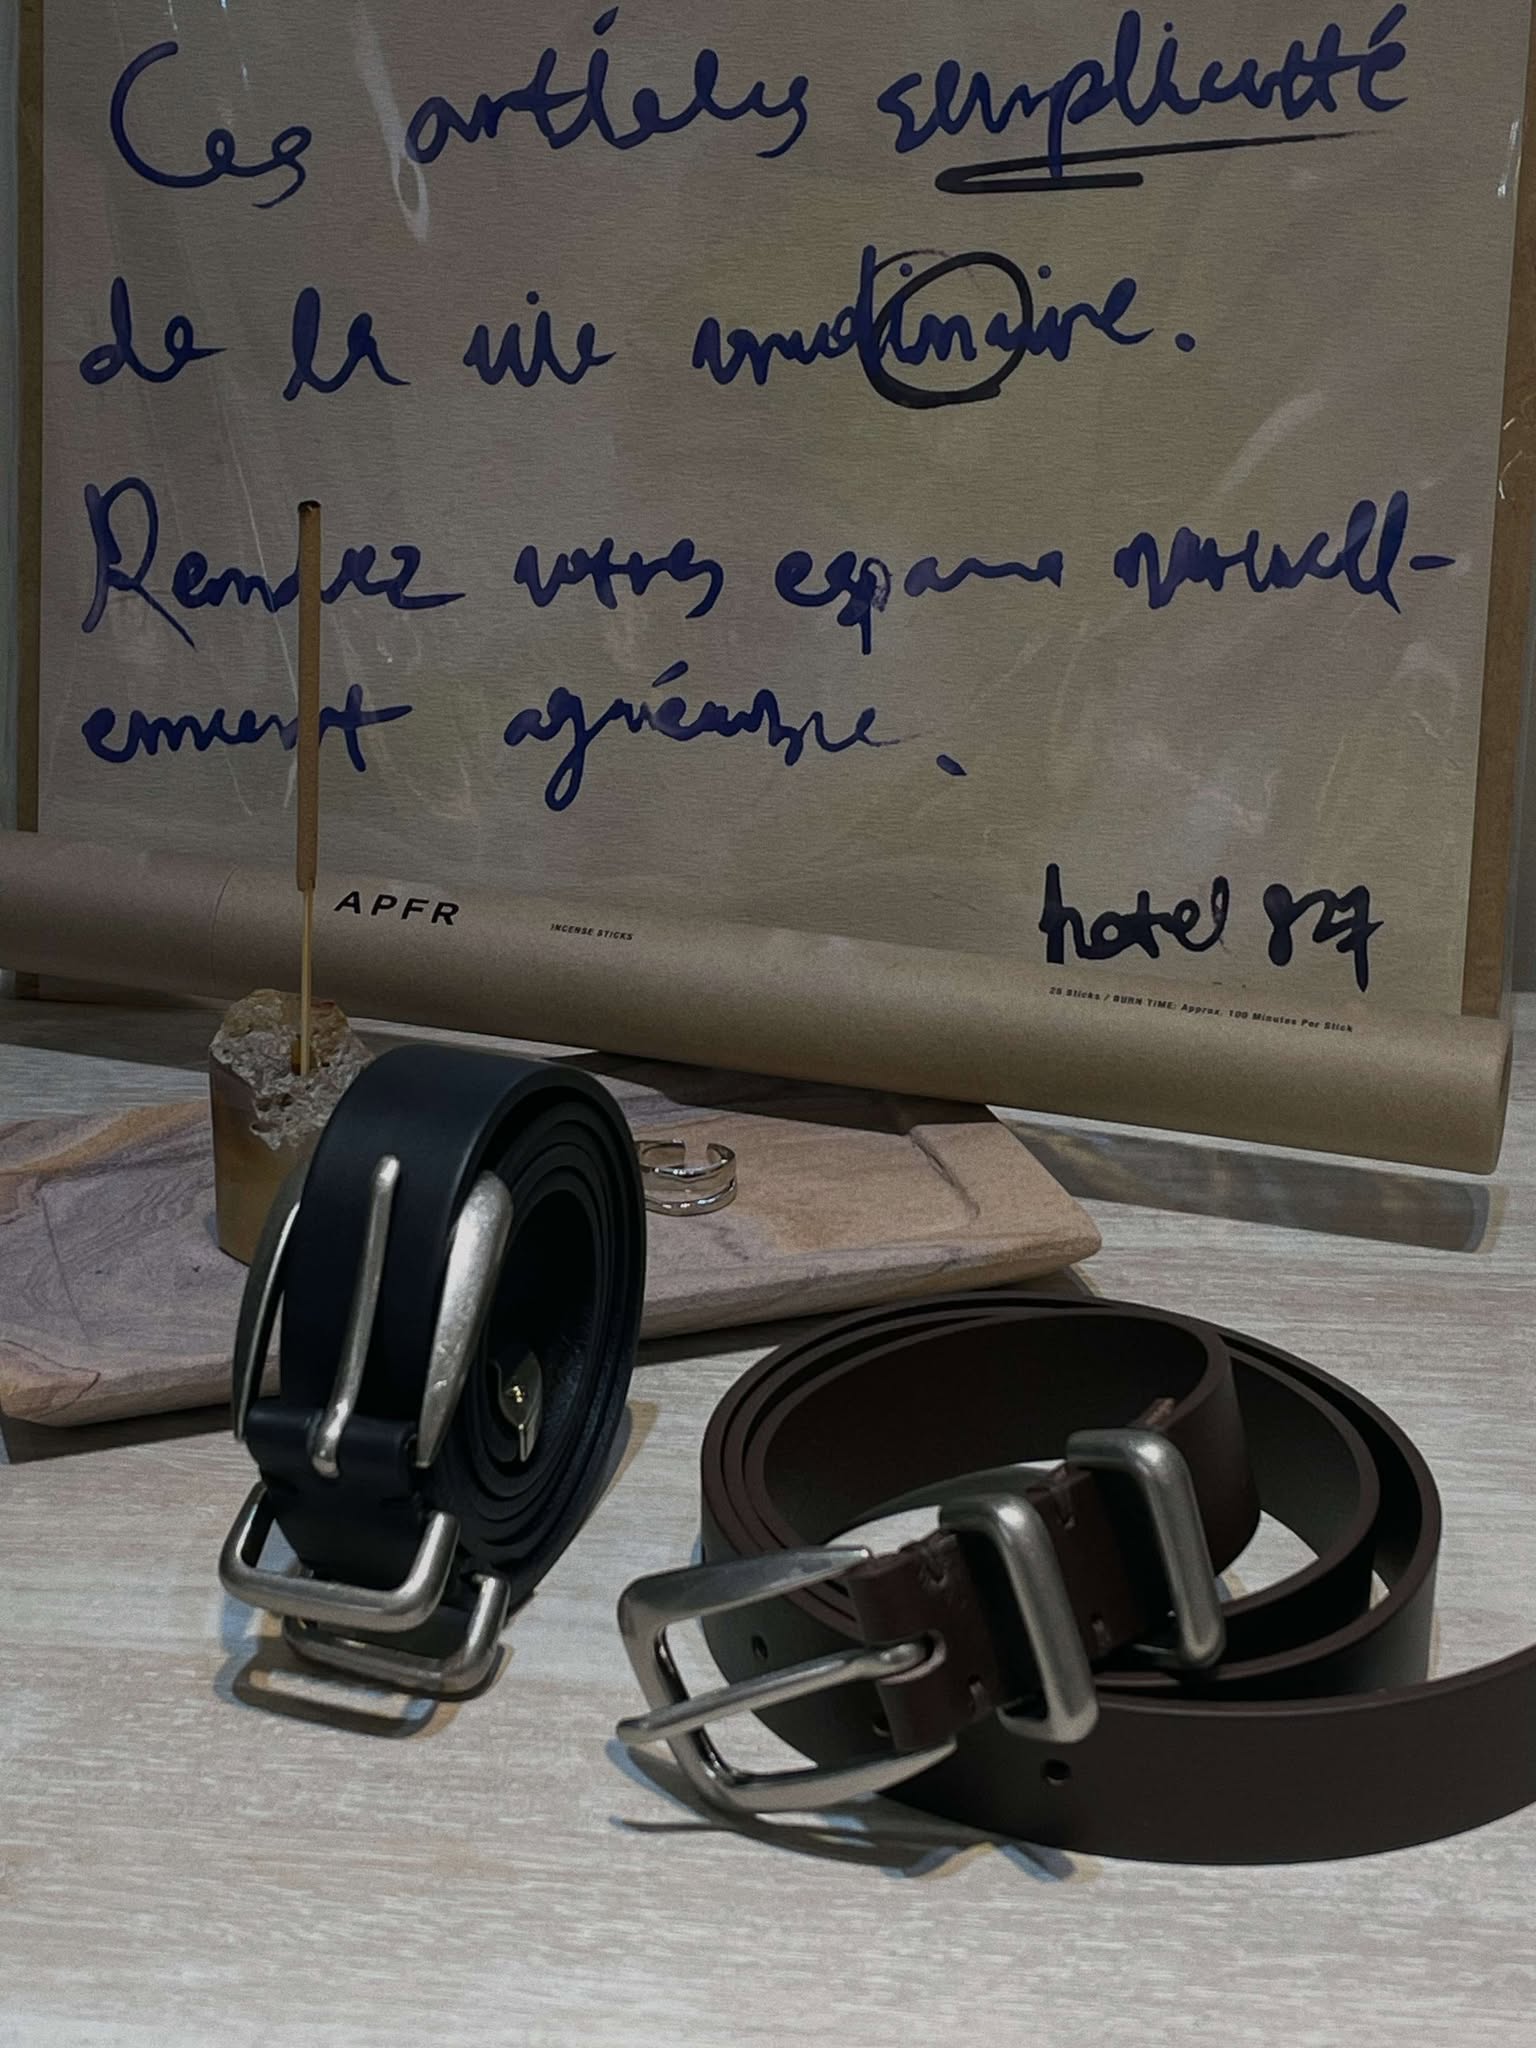 Ces artícles semplicitté
de la vie
Rendez votres espace nouvell-
ement agréable.
hotel 827
APFR
INCENSE STICKS
25 Sticks / BURN TIME: Approx. 100 Minutes Per Stick